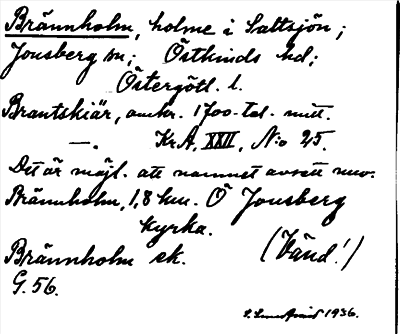 Brännholm, holme i Saltsjön;
Jonsberg sn; Östkinds hd;
Östergötl. l.
Brantskiär, omkr. 1700-tal. mitt.
—. KrA, XXII, N:o 25.
Det är möjl. att namnet avsett nuv.
Brännholm, 1,8 km. Ö Jonsberg
kyrka.
Brännholm ek. (Vänd!)
G. 56.
1936.